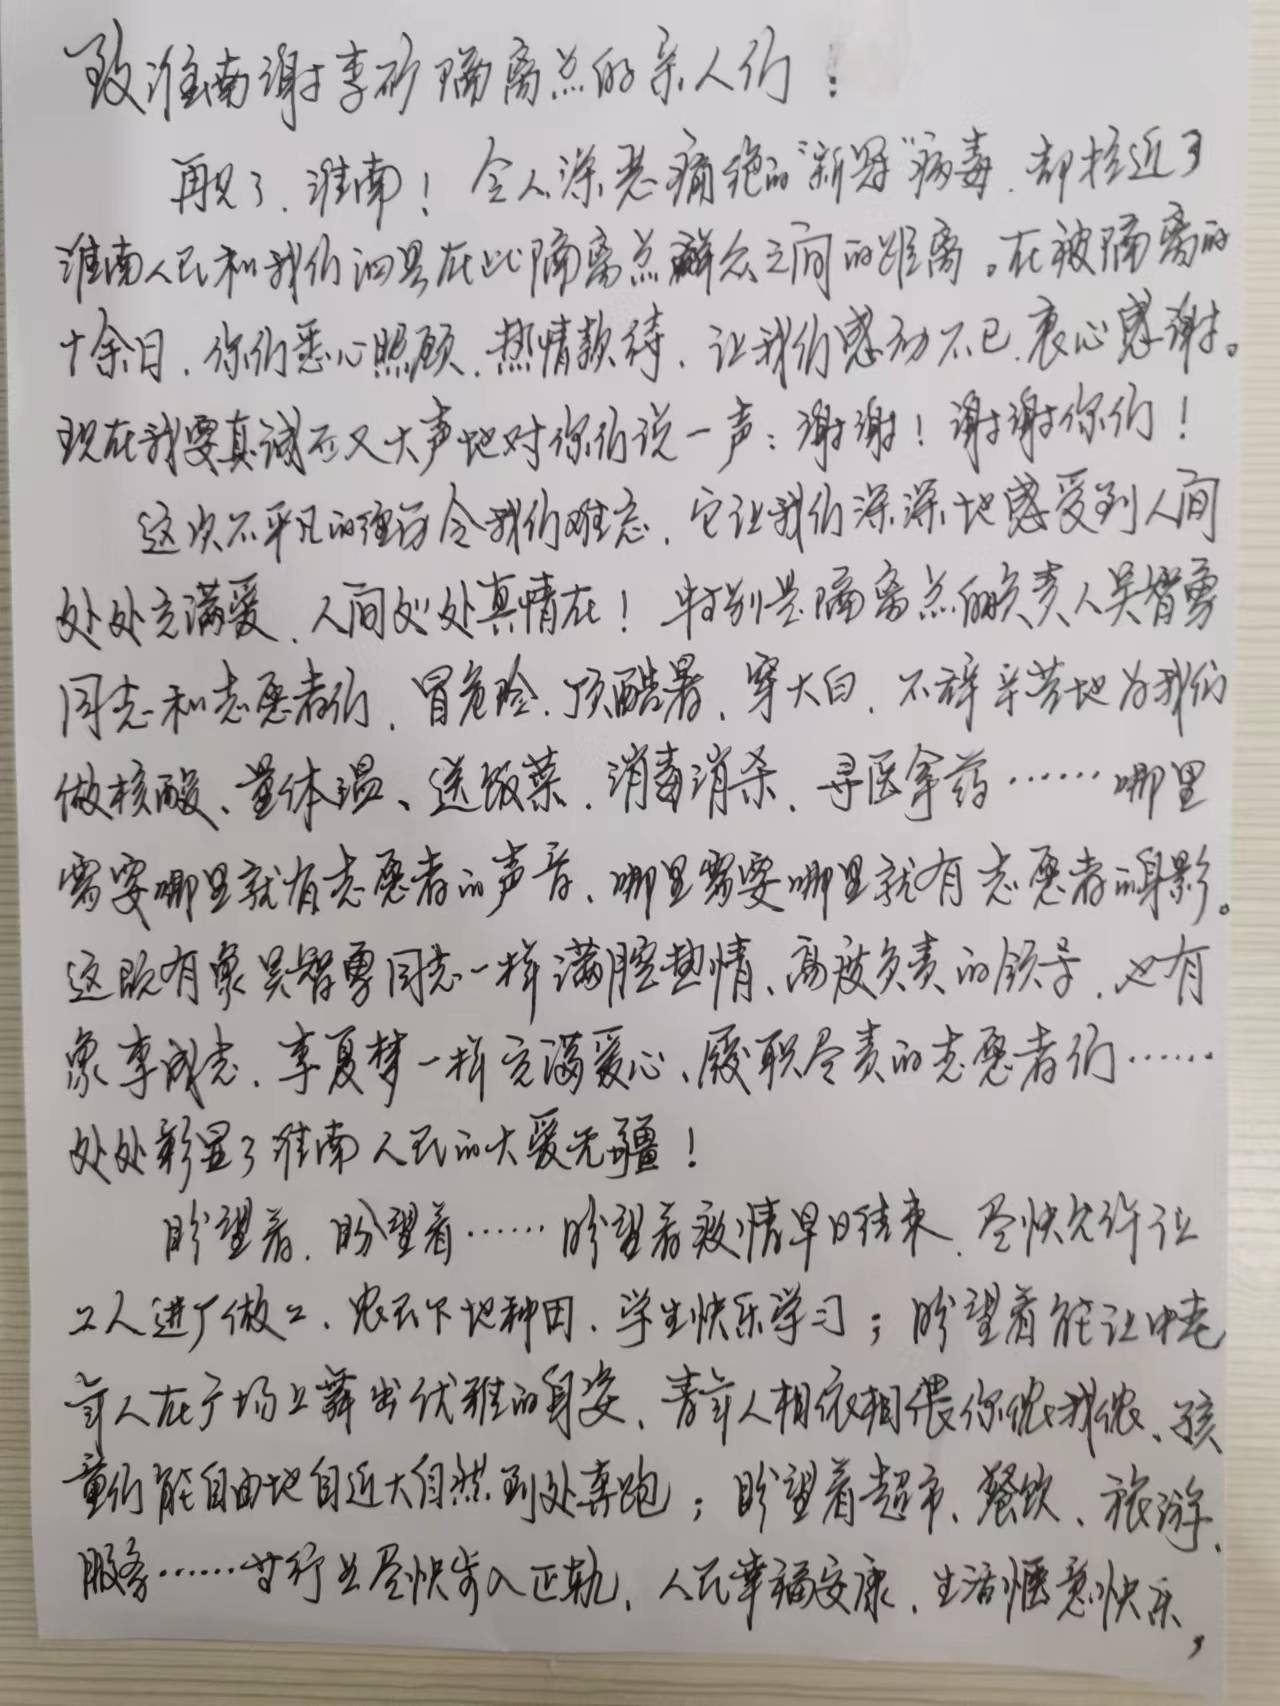 致淮南谢李矿隔离点的亲人们：
再见了、淮南！令人深恶痛绝的“新冠”病毒、却拉近了
淮南人民和我们泗县在此隔离点群众之间的距离。在被隔离的
十余日、你们悉心照顾、热情款待、让我们感动不已、衷心感谢。
现在我要真诚而又大声地对你们说一声：谢谢！谢谢你们！
这次不平凡的经历令我们难忘、它让我们深深地感受到人间
处处充满爱、人间处处真情在！特别是隔离点的负责人吴智勇
同志和志愿者们、冒危险、顶酷暑、穿大白、不辞辛苦地为我们
做核酸、量体温、送饭菜、消毒消杀、寻医拿药……哪里
需要哪里就有志愿者的声音、哪里需要哪里就有志愿者的身影。
这既有象吴智勇同志一样满腔热情、高度负责的领导、也有
象李成志、李夏梦一样充满爱心、履职尽责的志愿者们……
处处彰显了淮南人民的大爱无疆！
盼望着、盼望着……盼望着疫情早日结束、尽快允许让
工人进厂做工、农民下地种田、学生快乐学习；盼望着能让中老
年人在广场上舞出优雅的身姿、青年人相依相偎你侬我侬、孩
童们能自由地自近大自然到处奔跑；盼望着超市、餐饮、旅游、
服务……等行业尽快步入正轨、人民幸福安康、生活惬意快乐，